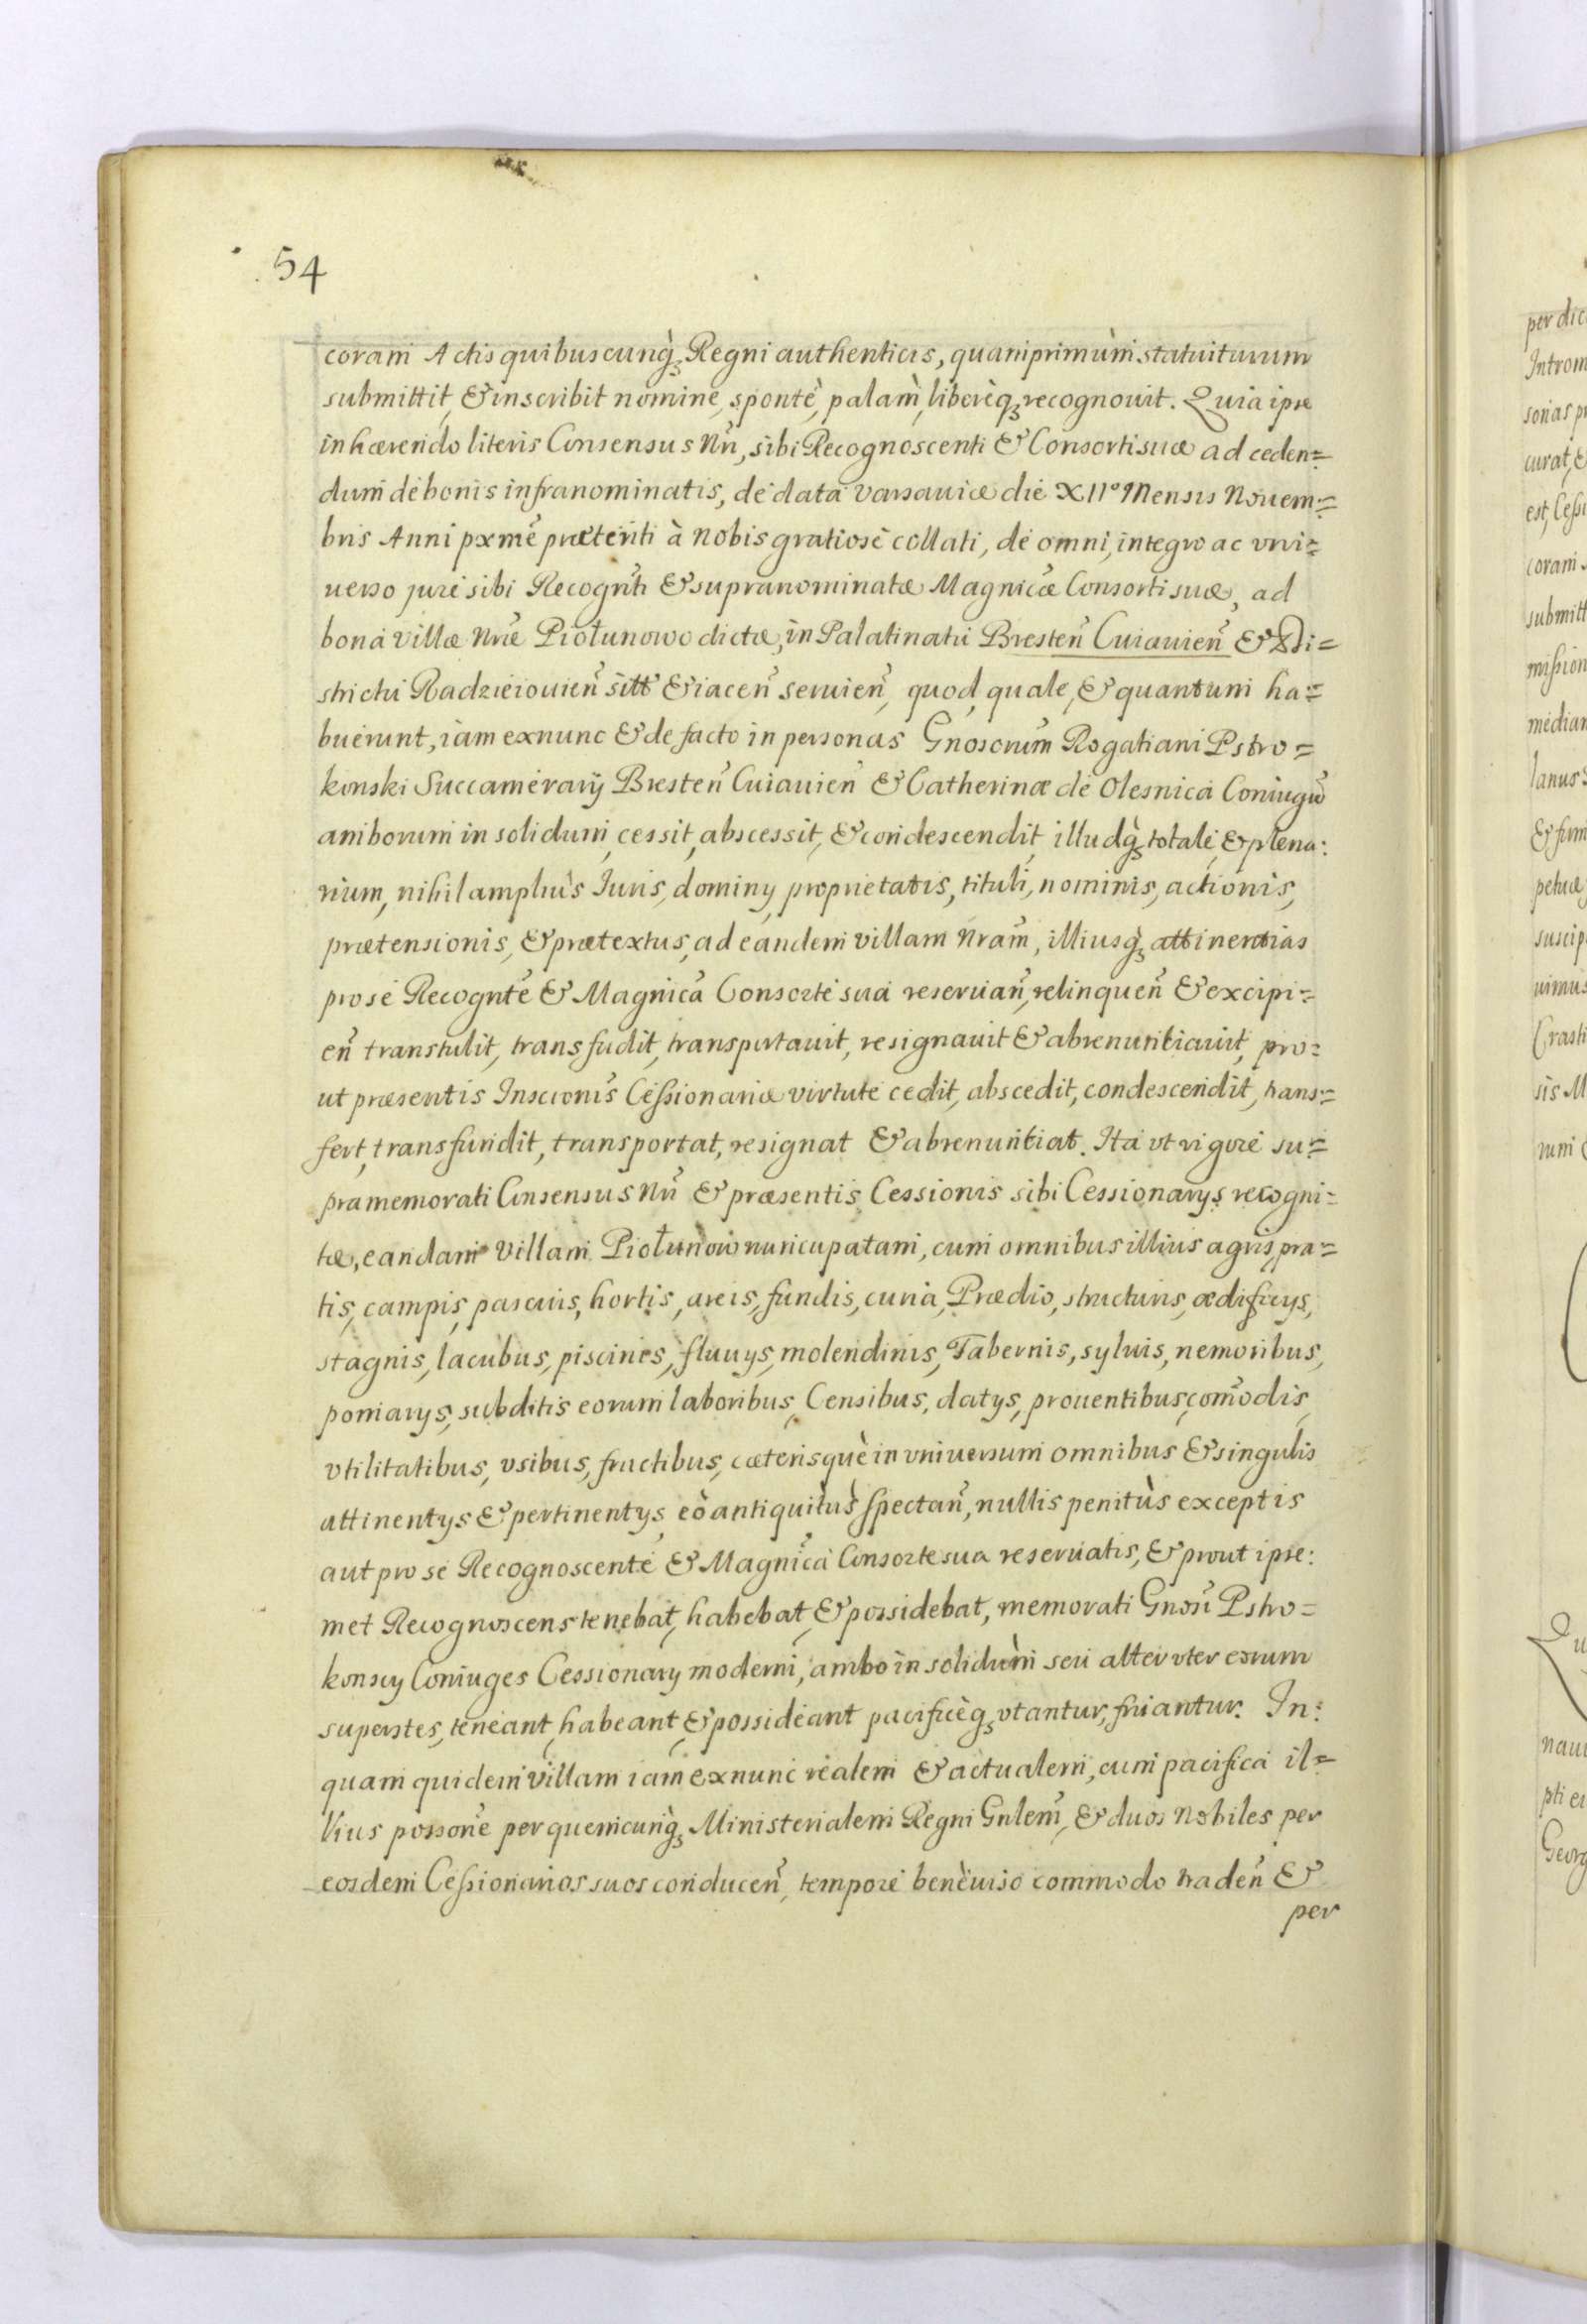 54
coram Actis quibuscunq́ʒ Regni authenticis, quamprimùm statuiturum
submittit, & inscribit nomine, spontè, palàm, liberèqʒ recognouit. Quia ipse
inhærendo literis Consensus Nr̃i, sibi Recognoscenti & Consorti suæ ad ceden=
dum de bonis infranominatis, de data Varsauiæ die XII° Mensis Nouem=
bris Anni pxmẽ præteriti à Nobis gratiosè collati, de omni, integro ac vni=
uerso jure sibi Recogn̄ti & supranominatæ Magnicæ Consorti suæ, ad
bona villæ Nr̃æ Piołunowo dictæ, in Palatinatu Bresteñ Cuiauieñ & Di=
strictu Radzieiouieñ sitt & iaceñ seruieñ, quod, quale, & quantum ha=
buerunt, iam exnunc & de facto in personas Gnosorum Rogatiani Pstro=
konski Succamerarij Bresteñ Cuiauieñ & Catherinæ de Olesnica Coniugũ
amborum in solidum, cessit, abscessit, & condescendit, illudq́ʒ totale, & plena:
rium, nihil ampliùs Iuris, dominy, proprietatis, tituli, nominis, actionis,
prætensionis, & prætextus, ad eandem villam Nram̃, illiusq́ʒ attinentias
pro se Recogntẽ & Magnicã Consorte sua reseruañ, relinqueñ & excipi=
eñ transtulit, transfudit, transportauit, resignauit & abrenuntiauit, pro=
ut præsentis Inscrionis Ceſsionariæ virtute cedit, abscedit, condescendit, trans=
fert, transfundit, transportat, resignat & abrenuntiat. Ita vt vigore su=
pramemorati Consensus Nr̃i & præsentis Cessionis sibi Cessionarys recogni=
tæ, eandam villam Piołunow nuncupatam, cum omnibus illius agris, pra=
tis, campis, pascuis, hortis, areis, fundis, curia, Prædio, structuris, ædificys,
stagnis, lacubus, piscinis, fluuys, molendinis, Tabernis, syluis, nemoribus,
pomarys, subditis eorum laboribus, Censibus, datys, prouentibus, com̃odis,
vtilitatibus, vsibus, fructibus, cæterisquè in vniuersum omnibus & singulis
attinentys & pertinentys eò antiquitùs spectañ, nullis penitùs exceptis
aut pro se Recognoscente & Magnicã Consorte sua reseruatis, & prout ipse:
met Recognoscens tenebat, habebat, & possidebat, memorati Gnosi Pstro=
konscy Coniuges Cessionary moderni, ambo in solidùm seu alter vter eorum
superstes, teneant, habeant, & possideant pacificèqʒ vtantur, fruantur. In:
quam quidem villam iam exnunc realem & actualem, cum pacifica il=
lius possonẽ per quemcunq́ʒ Ministerialem Regni Gnlem̃, & duos Nobiles per
eosdem Ceſsionarios suos conduceñ, tempore benèuiso commodo tradeñ &
per